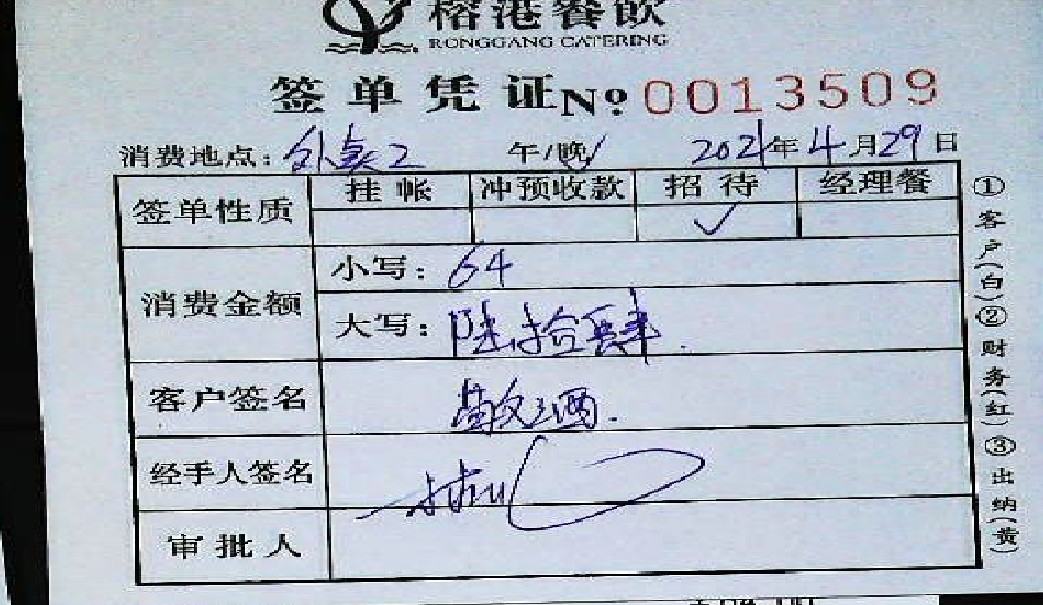 榕港餐飲
RONGGANG CATERING
签单凭证 № 0013509
消费地点：外卖2 午/晚/ 2021年4月29日
签单性质 挂帐 冲预收款 招待 经理餐
✓
消费金额 小写：64
大写：陆拾肆
客户签名
经手人签名
审批人
①客户(白)②财务(红)③出纳(黄)